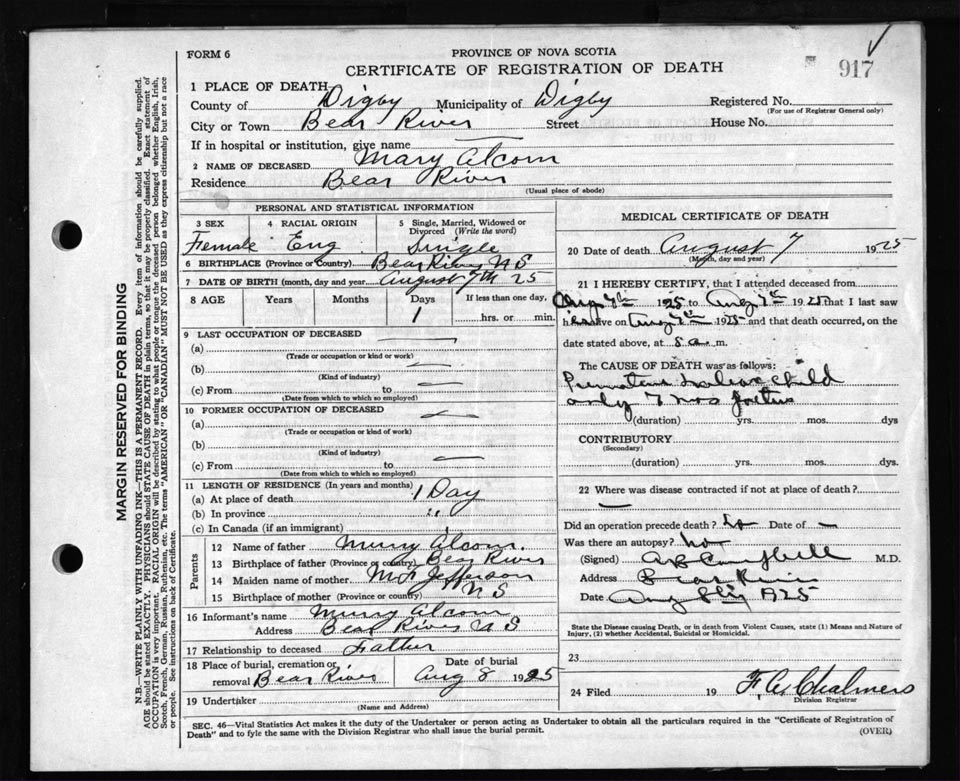 FORM 6
PROVINCE OF NOVA SCOTIA
CERTIFICATE OF REGISTRATION OF DEATH
917
1 PLACE OF DEATH
County of Digby Municipality of Digby Registered No.
(For use of Registrar General only)
City or Town Bear River Street House No.
If in hospital or institution, give name
2 NAME OF DECEASED Mary Alcorn
Residence Bear River
(Usual place of abode)
PERSONAL AND STATISTICAL INFORMATION
3 SEX 4 RACIAL ORIGIN 5 Single, Married, Widowed or
Divorced (Write the word)
Female Eng Single
6 BIRTHPLACE (Province or Country) Bear River N S
7 DATE OF BIRTH (month, day and year) August 7th 25
8 AGE Years Months Days If less than one day,
1 hrs. or min.
9 LAST OCCUPATION OF DECEASED
(a)
(Trade or occupation or kind or work)
(b)
(Kind of industry)
(c) From to
(Date from which to which so employed)
10 FORMER OCCUPATION OF DECEASED
(a)
(Trade or occupation or kind of work)
(b)
(Kind of industry)
(c) From to
(Date from which to which so employed)
11 LENGTH OF RESIDENCE (In years and months)
(a) At place of death 1 Day
(b) In province "
(c) In Canada (if an immigrant)
Parents
12 Name of father Murry Alcorn.
13 Birthplace of father (Province or country) Bear River
14 Maiden name of mother Jefferson
15 Birthplace of mother (Province or country) N S
16 Informant's name Murry Alcorn
Address Bear River N S
17 Relationship to deceased Father
18 Place of burial, cremation or Date of burial
removal Bear River Aug 8 1925
19 Undertaker
MEDICAL CERTIFICATE OF DEATH
20 Date of death August 7 1925
(Month, day and year)
21 I HEREBY CERTIFY, that I attended deceased from
Aug 7th 1925 to Aug 7th 1925 that I last saw
h alive on Aug 7th 1925 and that death occurred, on the
date stated above, at 5 a. m.
The CAUSE OF DEATH was as follows:
Premature child
only 7 mos foetus
(duration) yrs. mos. dys
CONTRIBUTORY
(Secondary)
(duration) yrs. mos. dys.
22 Where was disease contracted if not at place of death?
Did an operation precede death? No Date of —
Was there an autopsy? No
(Signed) Campbell M.D.
Address Bear River
Date Aug 8th 1925
State the Disease causing Death, or in death from Violent Causes, state (1) Means and Nature of
Injury, (2) whether Accidental, Suicidal or Homicidal.
23
24 Filed 19 Chalmers
Division Registrar
SEC. 46—Vital Statistics Act makes it the duty of the Undertaker or person acting as Undertaker to obtain all the particulars required in the "Certificate of Registration of
Death" and to fyle the same with the Division Registrar who shall issue the burial permit.
(OVER)
MARGIN RESERVED FOR BINDING
N.B.—WRITE PLAINLY WITH UNFADING INK—THIS IS A PERMANENT RECORD. Every item of information should be carefully supplied.
AGE should be stated EXACTLY. PHYSICIANS should STATE CAUSE OF DEATH in plain terms, so that it may be properly classified. Exact statement of
OCCUPATION is very important. RACIAL ORIGIN will be described by stating to what people or tongue the deceased person belonged, whether English, Irish,
Scotch, French, German, Russian, Ruthenian, etc. The terms "AMERICAN" or "CANADIAN" MUST NOT BE USED as they express citizenship but not a race
or people. See instructions on back of Certificate.